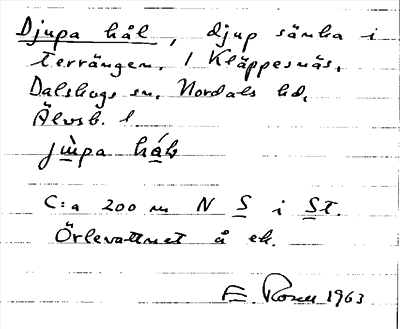 Djupa hål, djup sänka i
terrängen. / Kläppesnäs,
Dalskogs sn. Nordals hd.
Älvsb. l
jùpa håls
C:a 200 m N S i St.
Örlevattnet å ek.
E Rosell 1963